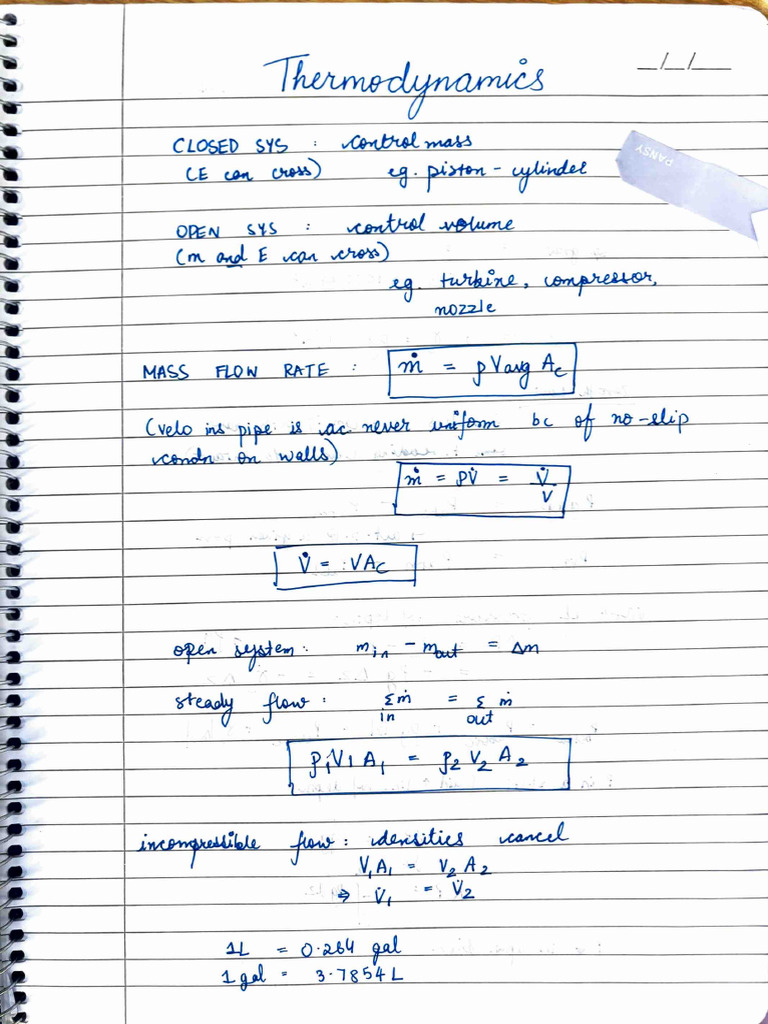 Thermodynamics
_/_/__
CLOSED SYS : control mass
(E can cross) eg. piston - cylinder
PANSY
OPEN SYS : control volume
(m and E can cross)
eg. turbine, compressor,
nozzle
MASS FLOW RATE : ṁ = ρ Vavg Ac
(velo ins pipe is ac never uniform bc of no-slip
condn on walls)
ṁ = ρV̇ = V̇/v
V̇ = VAc
open system: min - mout = Δm
steady flow : Σṁ = Σ ṁ
in out
ρ1V1A1 = ρ2 V2 A2
incompressible flow: densities cancel
V1A1 = V2 A2
⇒ V̇1 = V̇2
1L = 0.264 gal
1 gal = 3.7854 L